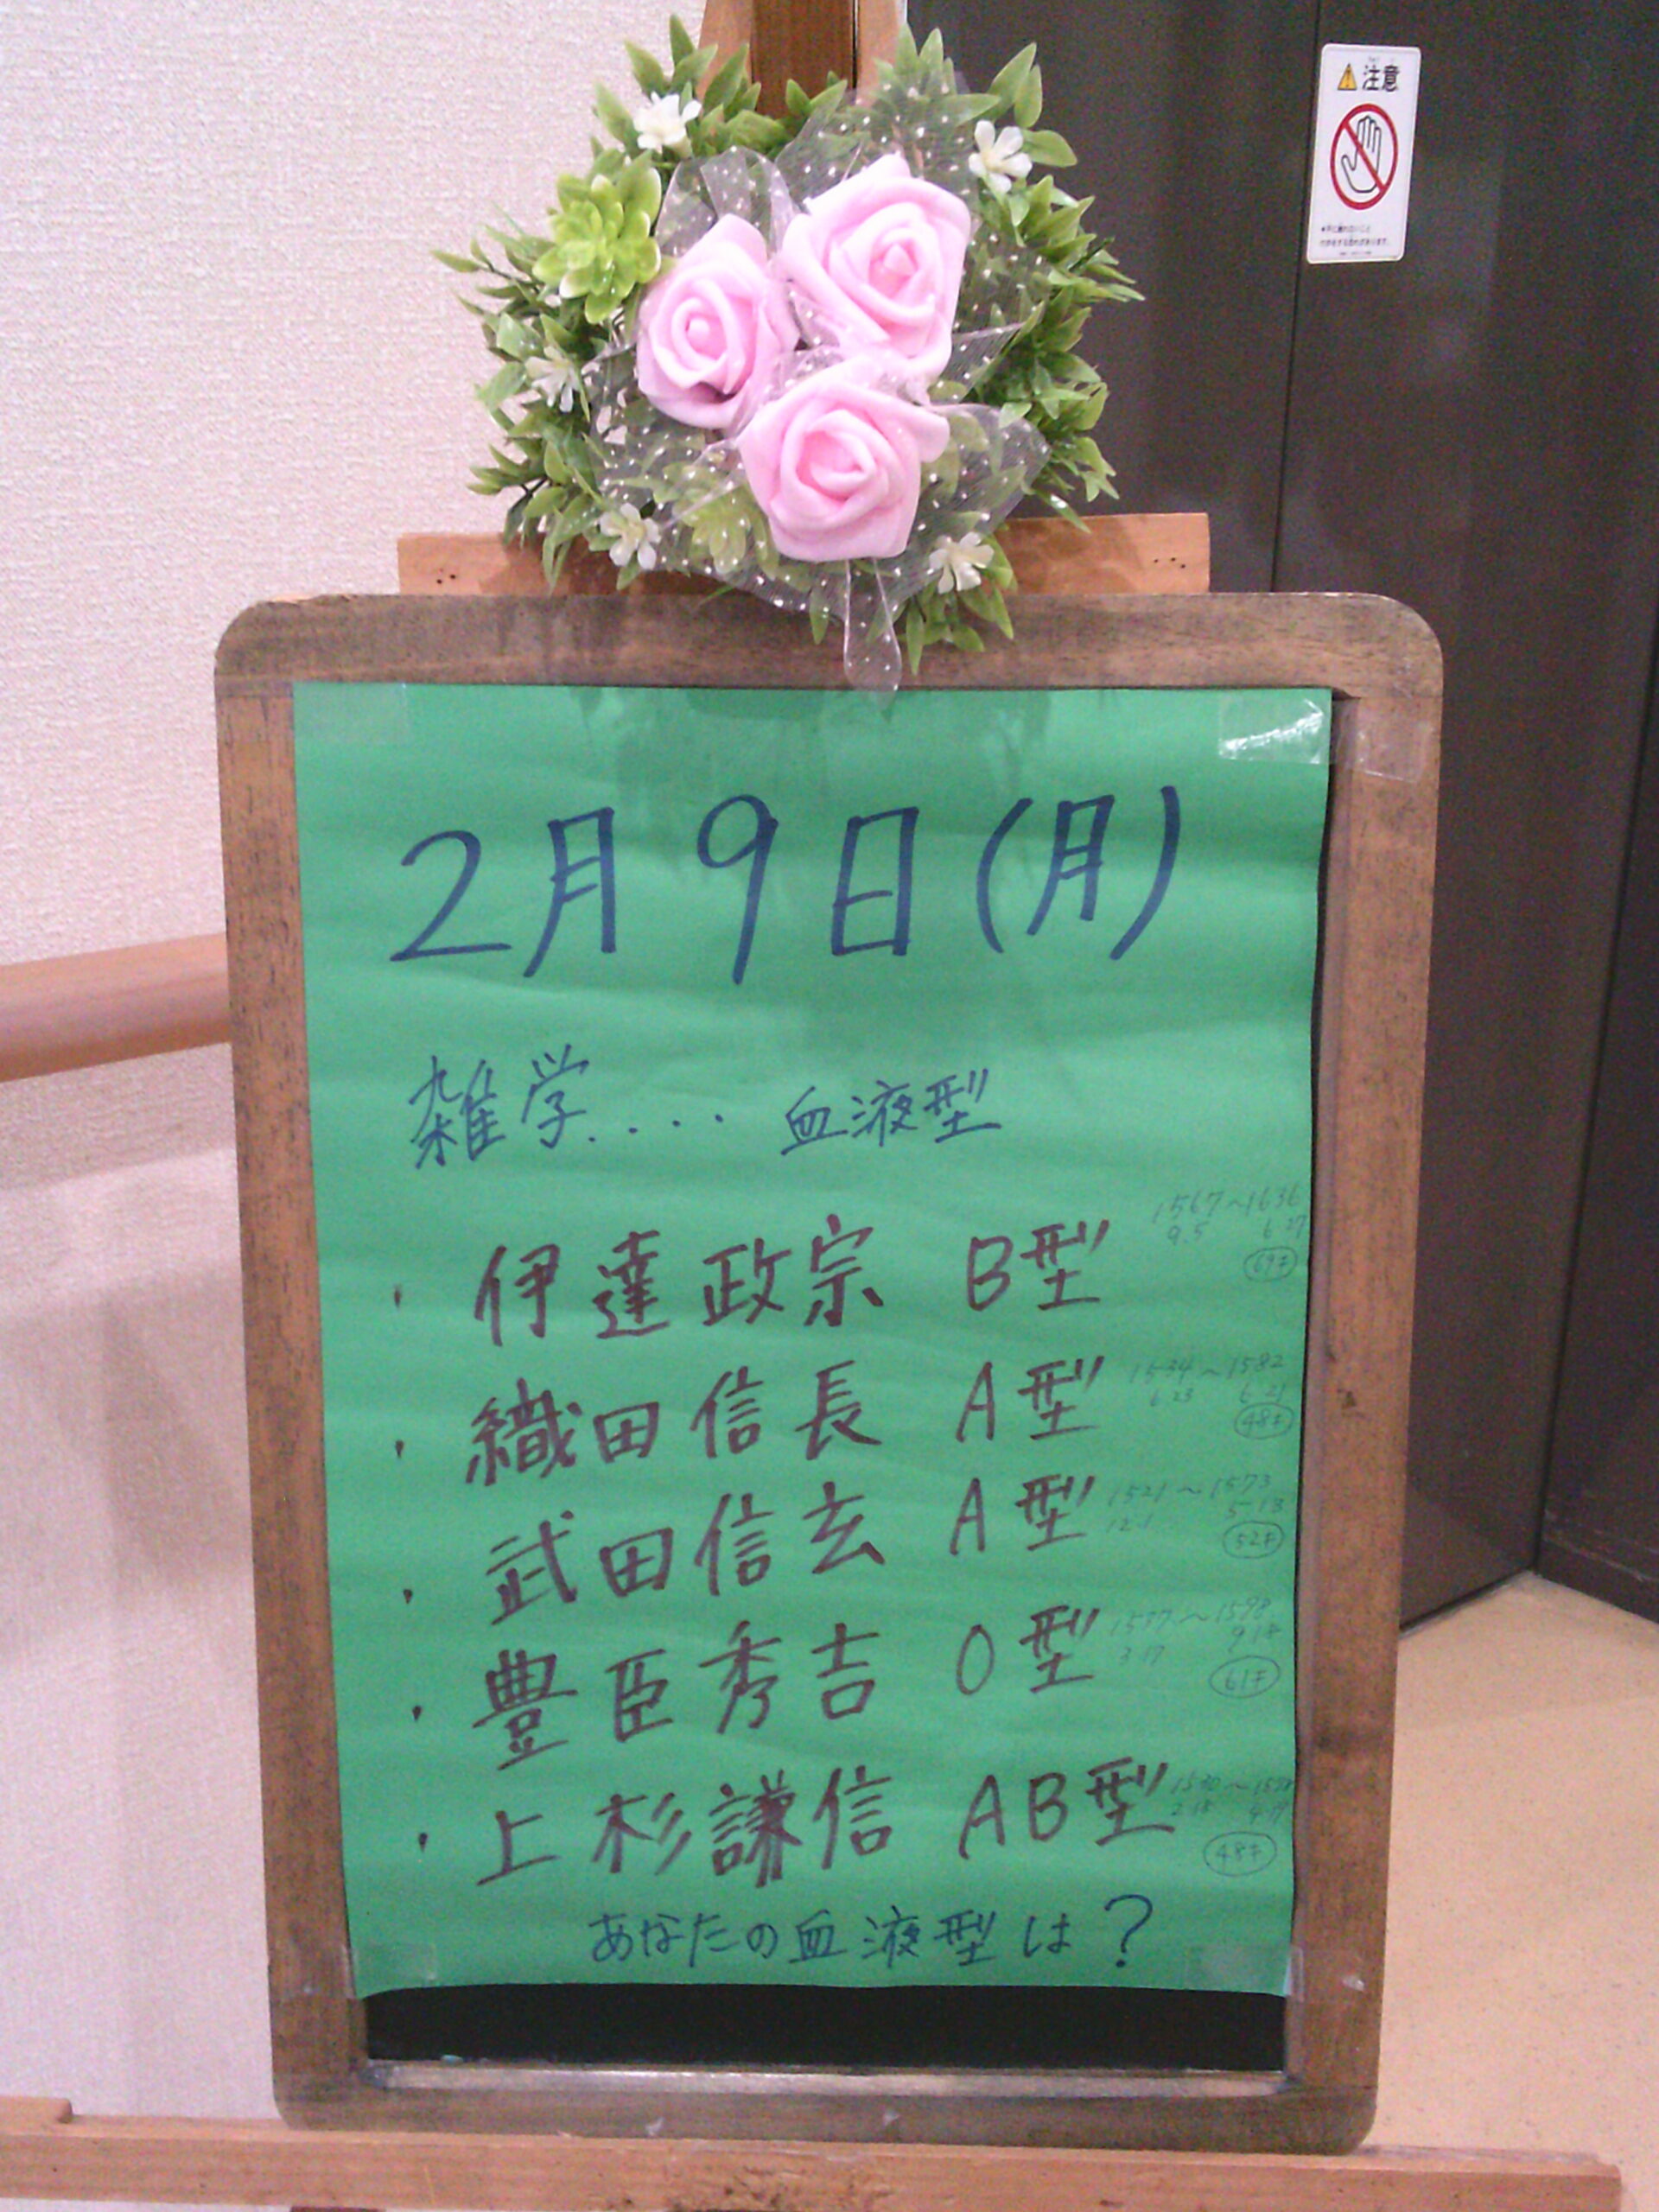 注意
2月9日(月)
雑学.... 血液型
・伊達政宗 B型
1567～1636
9.5 6 27
69才
・織田信長 A型
1534～1582
6 23 6 21
48才
・武田信玄 A型
1521～1573
12 1 5 13
52才
・豊臣秀吉 O型
1537～1598
3 17 9 18
61才
・上杉謙信 AB型
48才
あなたの血液型は?